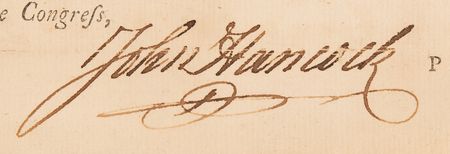 e Congreſs,
John Hancock P